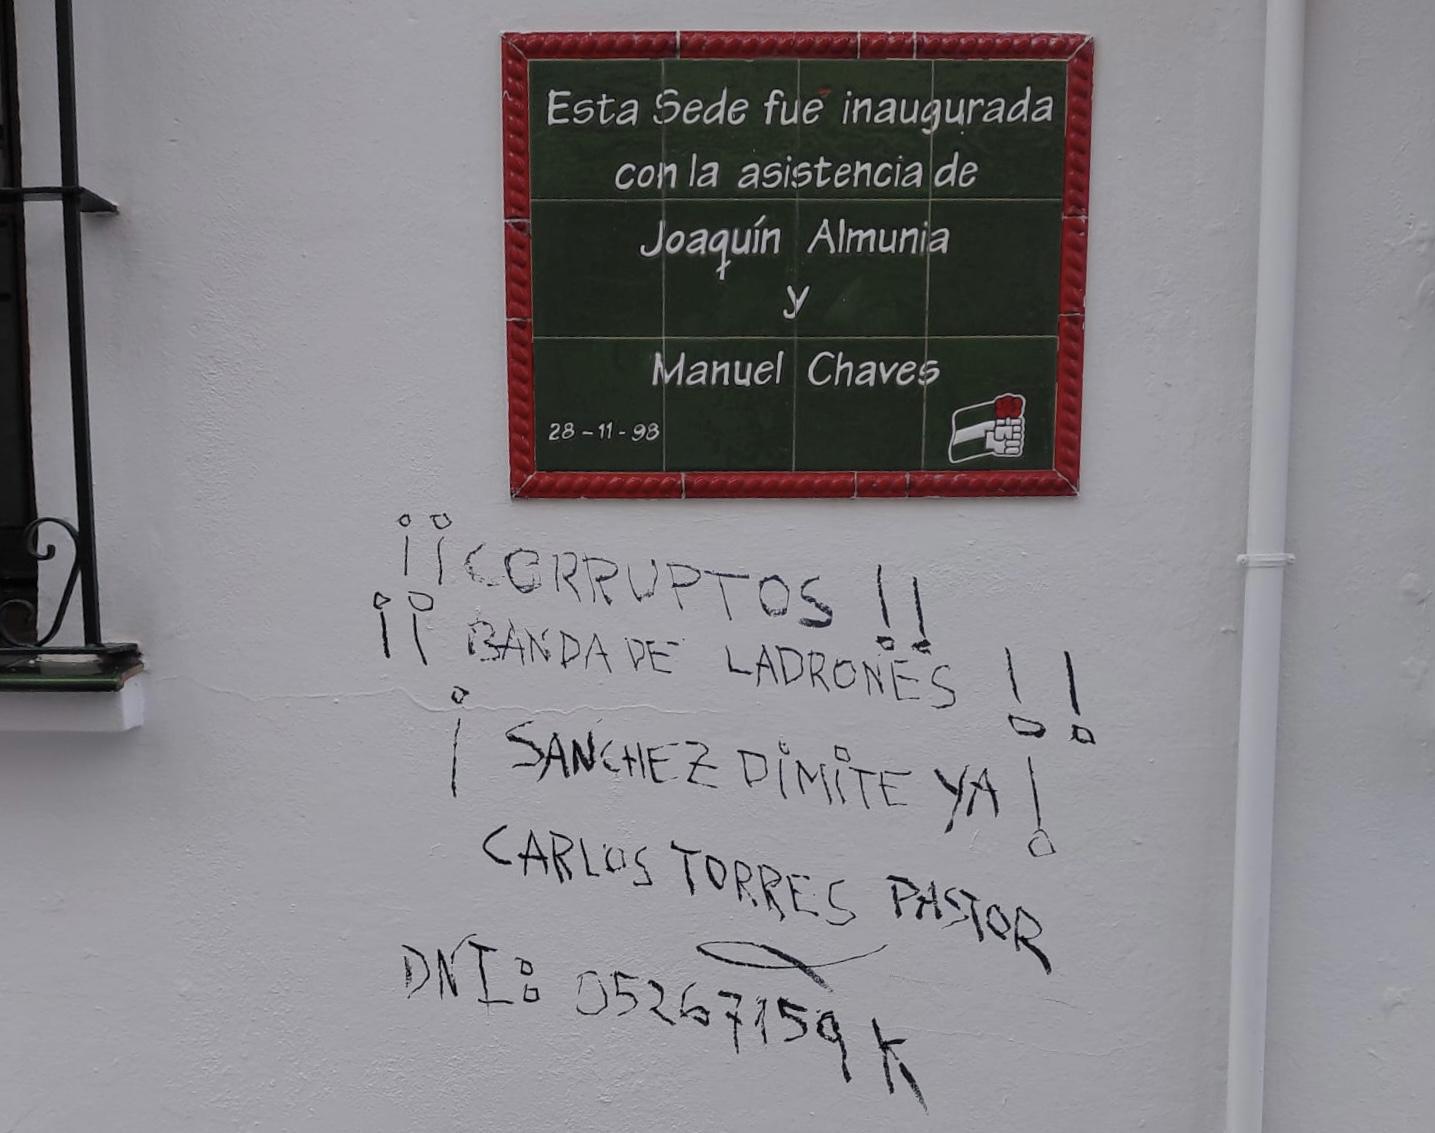 Esta Sede fue inaugurada
con la asistencia de
Joaquín Almunia
y
Manuel Chaves
28-11-98
¡¡CORRUPTOS!!
¡¡BANDA DE LADRONES!!
¡SANCHEZ DIMITE YA!
CARLOS TORRES PASTOR
DNI: 05267159K